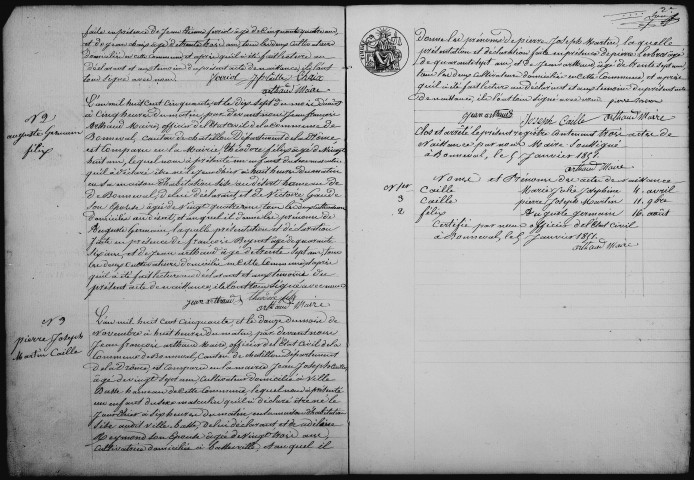 faite en présence de Jean Pierre Joriol âgé de Cinquante quatre ans
et de Jean Chaix âgé de trente trois ans, tous les deux cultivateurs
domiciliés en cette Commune, et après qu'il a été fait lecture au
déclarant et aux témoins du présent acte de naissance, ils l'ont
tous signé avec nous
arthaud Maire
N° 2
auguste germain
félix
L'an mil huit Cent Cinquante et le dix sept du mois d'août
à Cinq heures du matin, par devant nous Jean françois
Arthaud Maire, officier de l'Etat Civil de la Commune de
Bonneval, Canton de Chatillon Département de la Drôme,
est comparu en la Mairie, théodore félix âgé de Vingt
huit ans, lequel nous a présenté un enfant du sexe masculin
qu'il a déclaré être né le jour d'hier à huit heures du matin
en sa maison d'habitation sise au
de Bonneval, de lui déclarant et de Victoire
son épouse âgée de Vingt quatre ans tous les deux
domiciliés au dit, et auquel il a donné les prénoms de
Auguste Germain, laquelle présentation et déclaration
faite en présence de françois Beynet âgé de quarante
six ans, et de Jean arthaud âgé de trente sept ans, tous
les deux Cultivateurs domiciliés en cette Commune, et après
qu'il a été fait lecture au déclarant et aux témoins du
présent acte de naissance, ils l'ont tous signé avec nous
jean arthaud théodore félix
arthaud Maire
N° 3
pierre Joseph
Martin Caille
L'an mil huit Cent Cinquante et le douze du mois de
Novembre à huit heures du matin, par devant nous
Jean françois arthaud Maire, officier de l'Etat Civil de la
Commune de Bonneval, Canton de Chatillon Département
de la Drôme, est comparu en la mairie Jean Joseph Caille
âgé de Vingt sept ans, Cultivateur domicilié à Ville
Basse hameau de cette Commune, lequel nous a présenté
un enfant du sexe masculin qu'il a déclaré être né le
jour d'hier à six heures du matin, en sa maison d'habitation
sise au dit Ville basse, de lui déclarant et de adélaïde
Reymond son épouse âgée de Vingt trois ans,
cultivatrice domiciliée à basseville, et auquel il
Donne les prénoms de pierre Joseph Martin, laquelle
présentation et déclaration faite en présence de pierre
âgé de quarante sept ans, et de Jean arthaud âgé de trente sept ans,
tous les deux Cultivateurs domiciliés en cette Commune, et après
qu'il a été fait lecture au déclarant et aux témoins du présent acte
de naissance, ils l'ont tous signé avec nous
jean arthaud Joseph Caille arthaud Maire
Clos et arrêté le présent registre Contenant trois actes de
Naissance par nous Maire soussigné
à Bonneval, le 5 Janvier 1851.
arthaud Maire
Noms et Prénoms des actes de naissances
N° 1er Caille Marie Julie Joséphine 4 avril
3 Caille pierre Joseph Martin 11 9bre
2 félix Auguste germain 16 août
Certifié par nous officier de l'Etat Civil
à Bonneval, le 5 Janvier 1851.
arthaud Maire